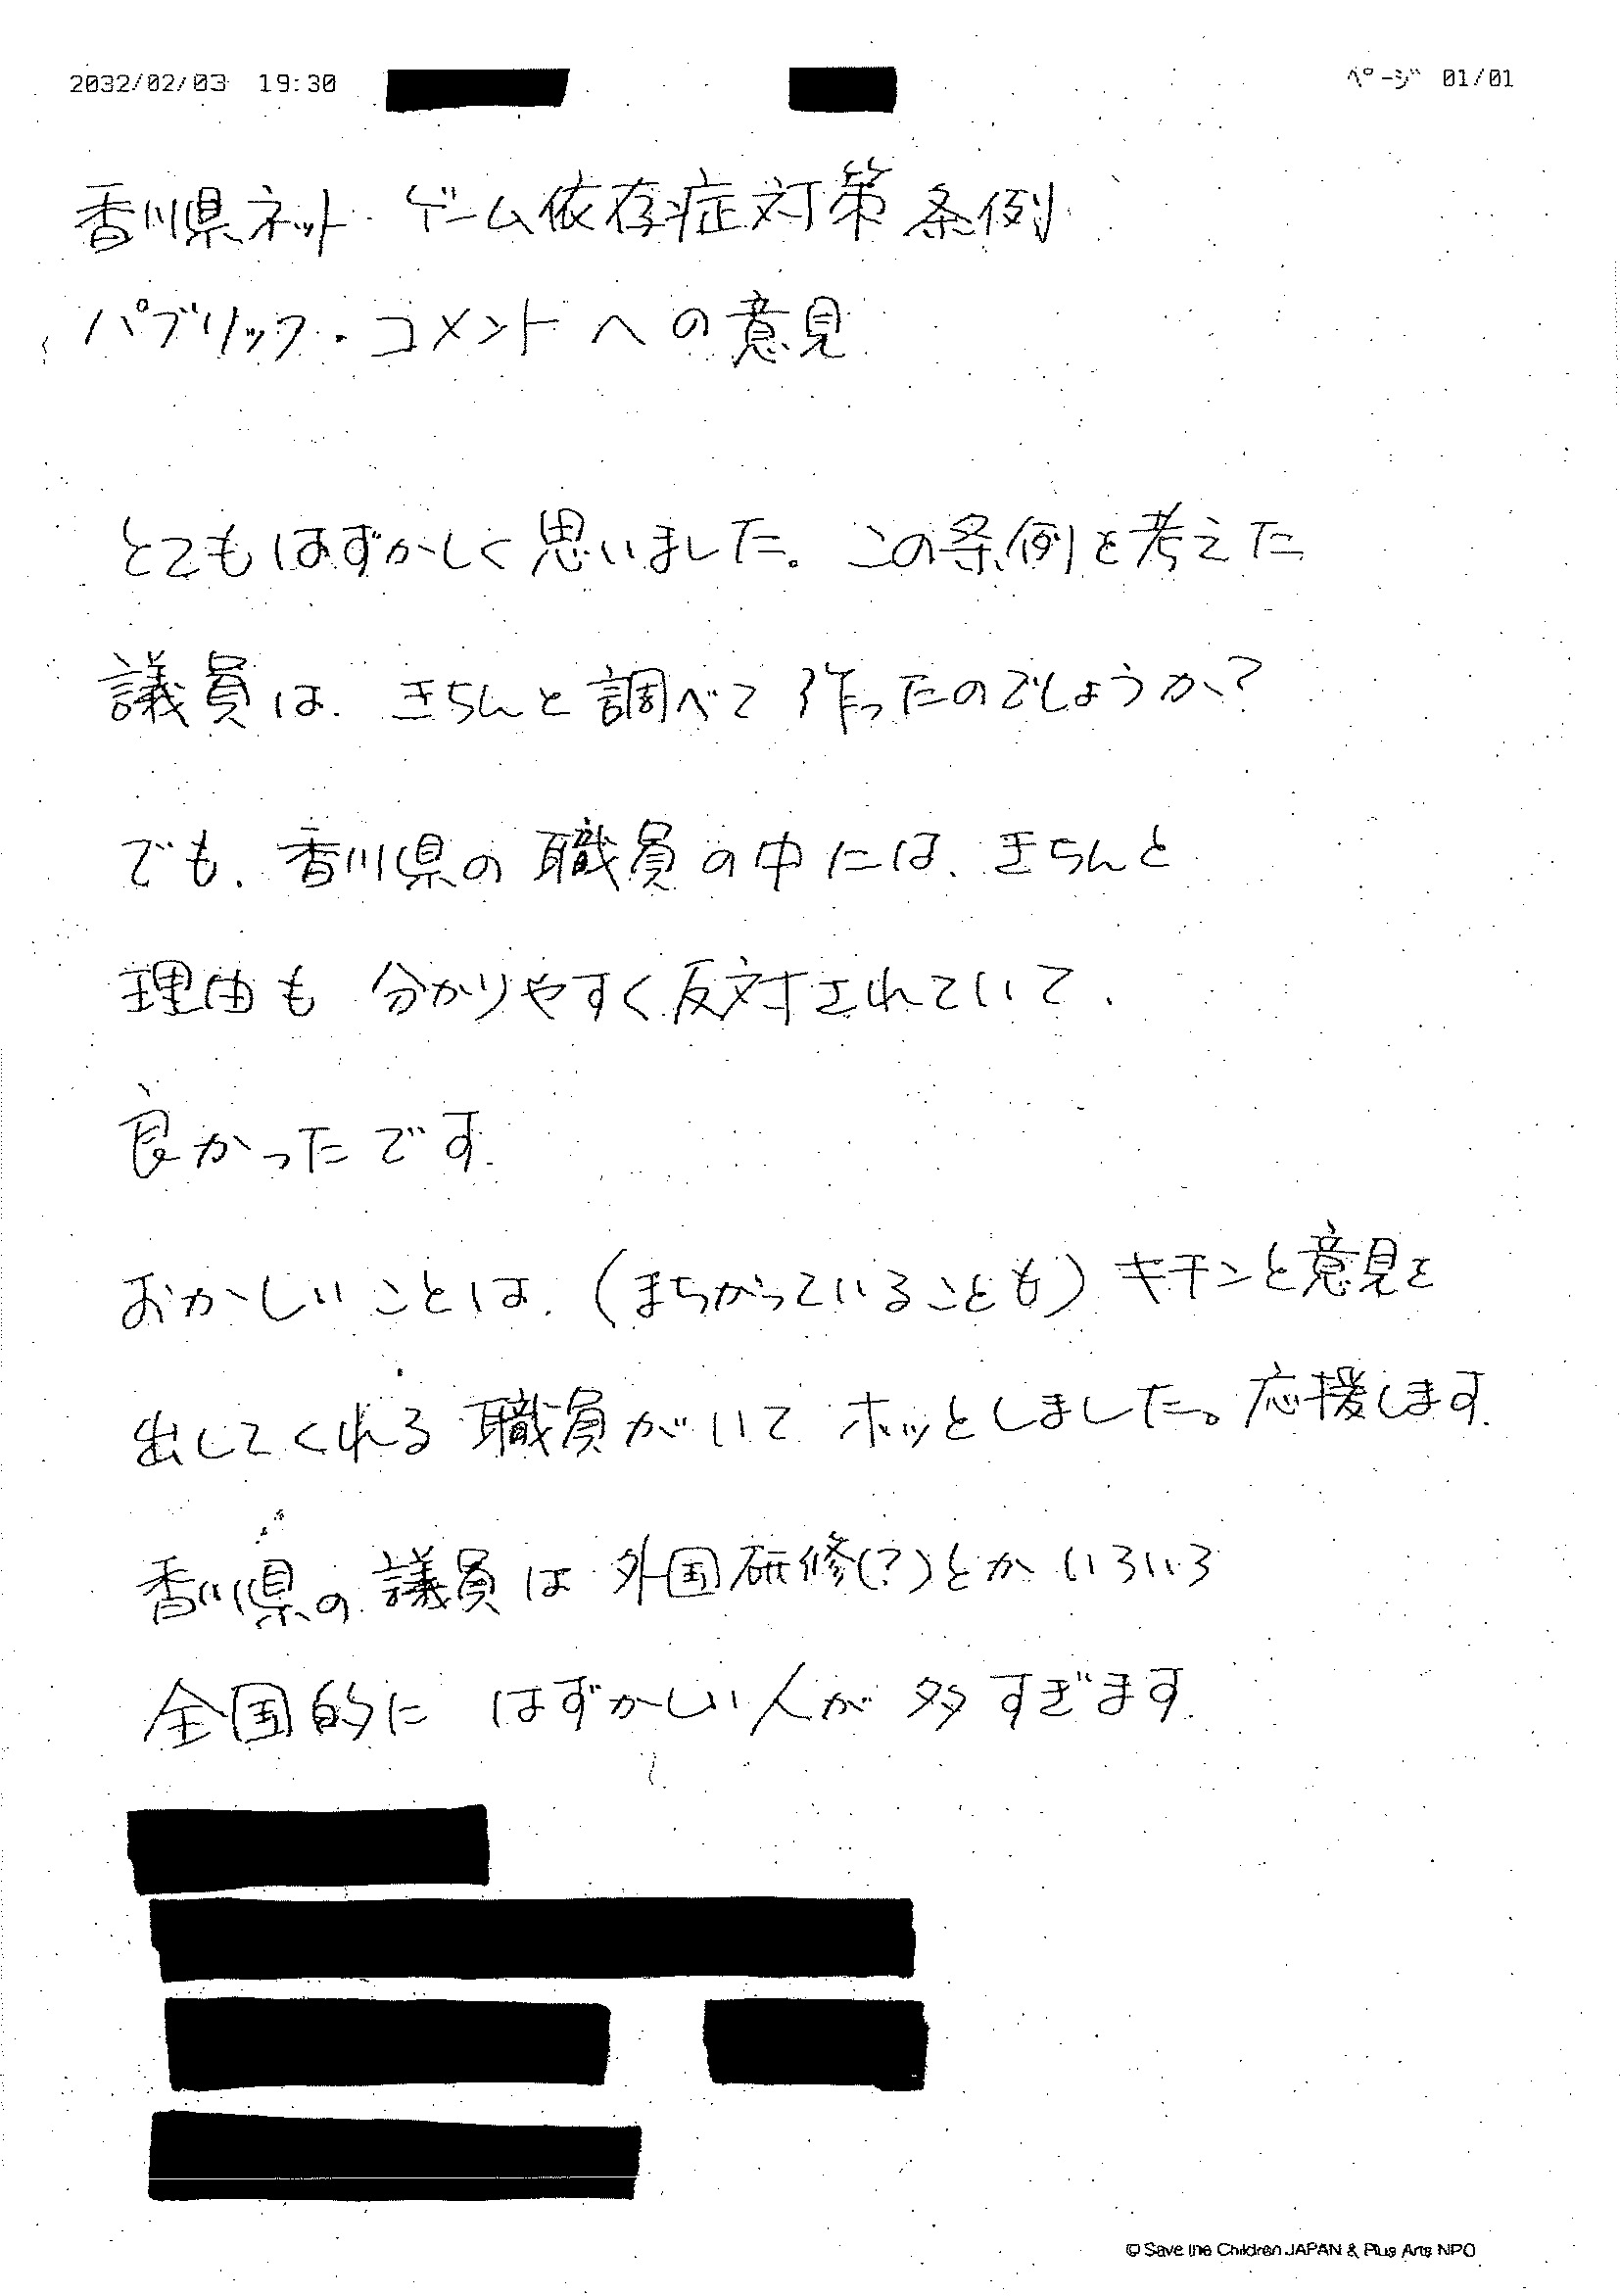 2032/02/03 19:30 ページ 01/01
香川県ネット・ゲーム依存症対策条例
パブリック・コメントへの意見
とてもはずかしく思いました。この条例を考えた
議員は、きちんと調べて作ったのでしょうか?
でも、香川県の職員の中には、きちんと
理由も分かりやすく反対されていて、
良かったです。
おかしいことは、(まちがっていることも)キチンと意見を
出してくれる職員がいてホッとしました。応援します。
香川県の議員は外国研修(?)とかいろいろ
全国的にはずかしい人が多すぎます。
© Save the Children JAPAN & Plus Arts NPO